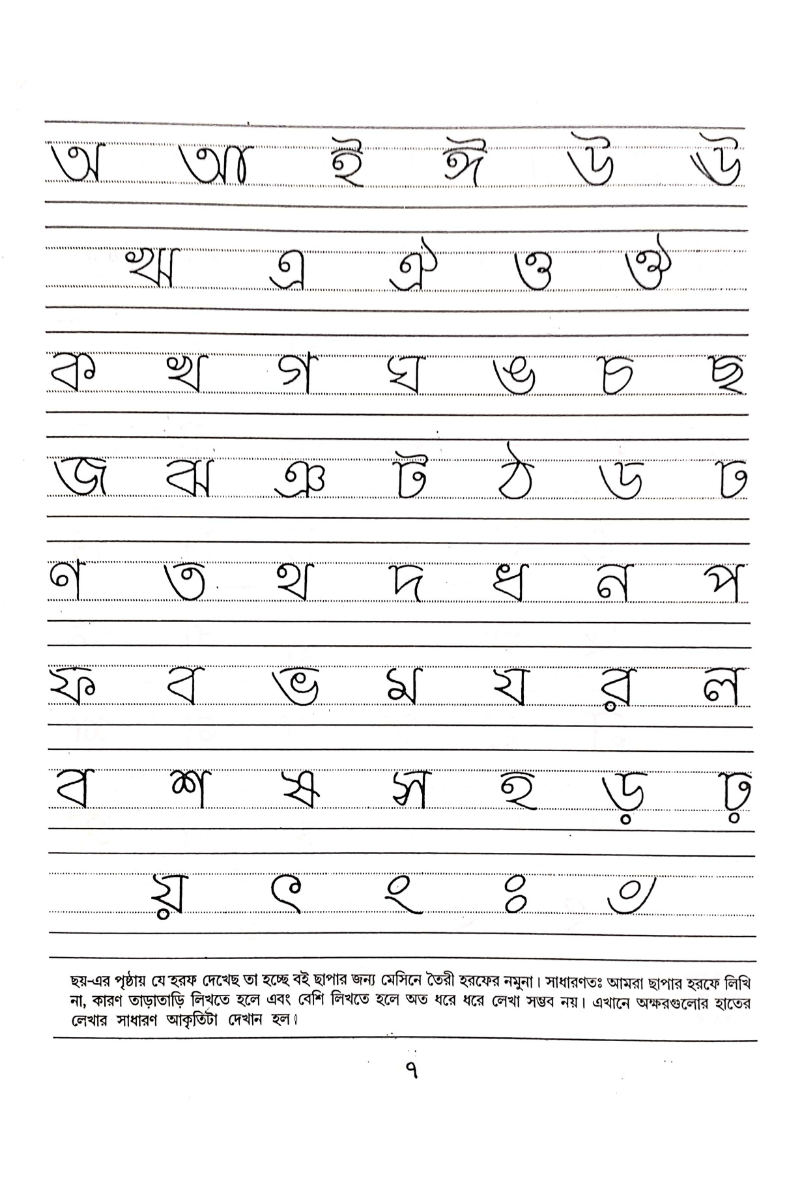 অ আ ই ঈ উ ঊ
ঋ এ ঐ ও ঔ
ক খ গ ঘ ঙ চ ছ
জ ঝ ঞ ট ঠ ড ঢ
ণ ত থ দ ধ ন প
ফ ব ভ ম য র ল
ব শ ষ স হ ড় ঢ়
য় ৎ ং ঃ ঁ
ছয়-এর পৃষ্ঠায় যে হরফ দেখেছ তা হচ্ছে বই ছাপার জন্য মেসিনে তৈরী হরফের নমুনা। সাধারণতঃ আমরা ছাপার হরফে লিখি
না, কারণ তাড়াতাড়ি লিখতে হলে এবং বেশি লিখতে হলে অত ধরে ধরে লেখা সম্ভব নয়। এখানে অক্ষরগুলোর হাতের
লেখার সাধারণ আকৃতিটা দেখান হল।
৭